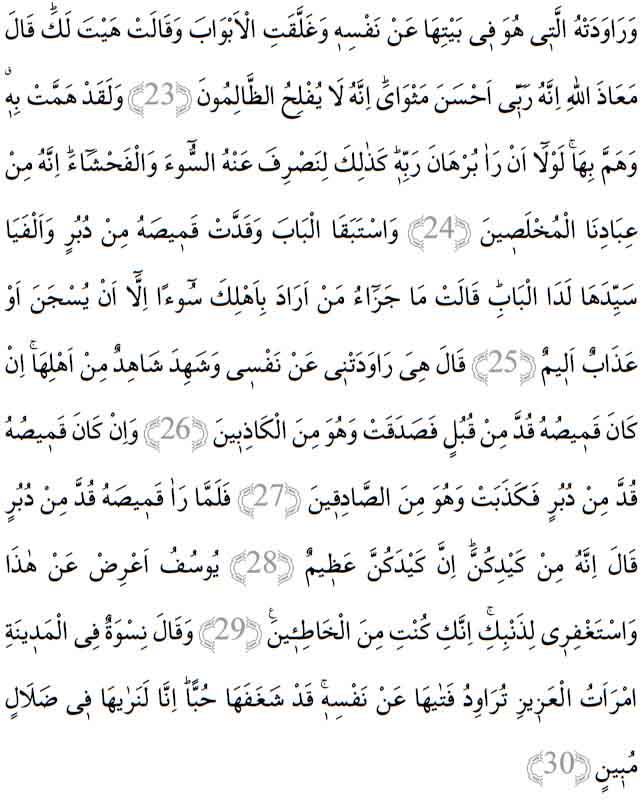 وَرَاوَدَتْهُ الَّتٖى هُوَ فٖى بَيْتِهَا عَنْ نَفْسِهٖ وَغَلَّقَتِ الْاَبْوَابَ وَقَالَتْ هَيْتَ لَكَؕ قَالَ
مَعَاذَ اللّٰهِ اِنَّهُ رَبّٖى اَحْسَنَ مَثْوَاىَؕ اِنَّهُ لَا يُفْلِحُ الظَّالِمُونَ ﴿23﴾ وَلَقَدْ هَمَّتْ بِهٖۙ
وَهَمَّ بِهَاۚ لَوْلَٓا اَنْ رَاٰ بُرْهَانَ رَبِّهٖؕ كَذٰلِكَ لِنَصْرِفَ عَنْهُ السُّٓوءَ وَالْفَحْشَٓاءَؕ اِنَّهُ مِنْ
عِبَادِنَا الْمُخْلَصٖينَ ﴿24﴾ وَاسْتَبَقَا الْبَابَ وَقَدَّتْ قَمٖيصَهُ مِنْ دُبُرٍ وَاَلْفَيَا
سَيِّدَهَا لَدَا الْبَابِؕ قَالَتْ مَا جَزَٓاءُ مَنْ اَرَادَ بِاَهْلِكَ سُٓوءًا اِلَّٓا اَنْ يُسْجَنَ اَوْ
عَذَابٌ اَلٖيمٌ ﴿25﴾ قَالَ هِىَ رَاوَدَتْنٖى عَنْ نَفْسٖى وَشَهِدَ شَاهِدٌ مِنْ اَهْلِهَاۚ اِنْ
كَانَ قَمٖيصُهُ قُدَّ مِنْ قُبُلٍ فَصَدَقَتْ وَهُوَ مِنَ الْكَاذِبٖينَ ﴿26﴾ وَاِنْ كَانَ قَمٖيصُهُ
قُدَّ مِنْ دُبُرٍ فَكَذَبَتْ وَهُوَ مِنَ الصَّادِقٖينَ ﴿27﴾ فَلَمَّا رَاٰ قَمٖيصَهُ قُدَّ مِنْ دُبُرٍ
قَالَ اِنَّهُ مِنْ كَيْدِكُنَّؕ اِنَّ كَيْدَكُنَّ عَظٖيمٌ ﴿28﴾ يُوسُفُ اَعْرِضْ عَنْ هٰذَا
وَاسْتَغْفِرٖى لِذَنْبِكِۚ اِنَّكِ كُنْتِ مِنَ الْخَاطِـٖٔينَ ﴿29﴾ وَقَالَ نِسْوَةٌ فِى الْمَدٖينَةِ
امْرَاَتُ الْعَزٖيزِ تُرَاوِدُ فَتٰيهَا عَنْ نَفْسِهٖۚ قَدْ شَغَفَهَا حُبًّاؕ اِنَّا لَنَرٰيهَا فٖى ضَلَالٍ
مُبٖينٍ ﴿30﴾